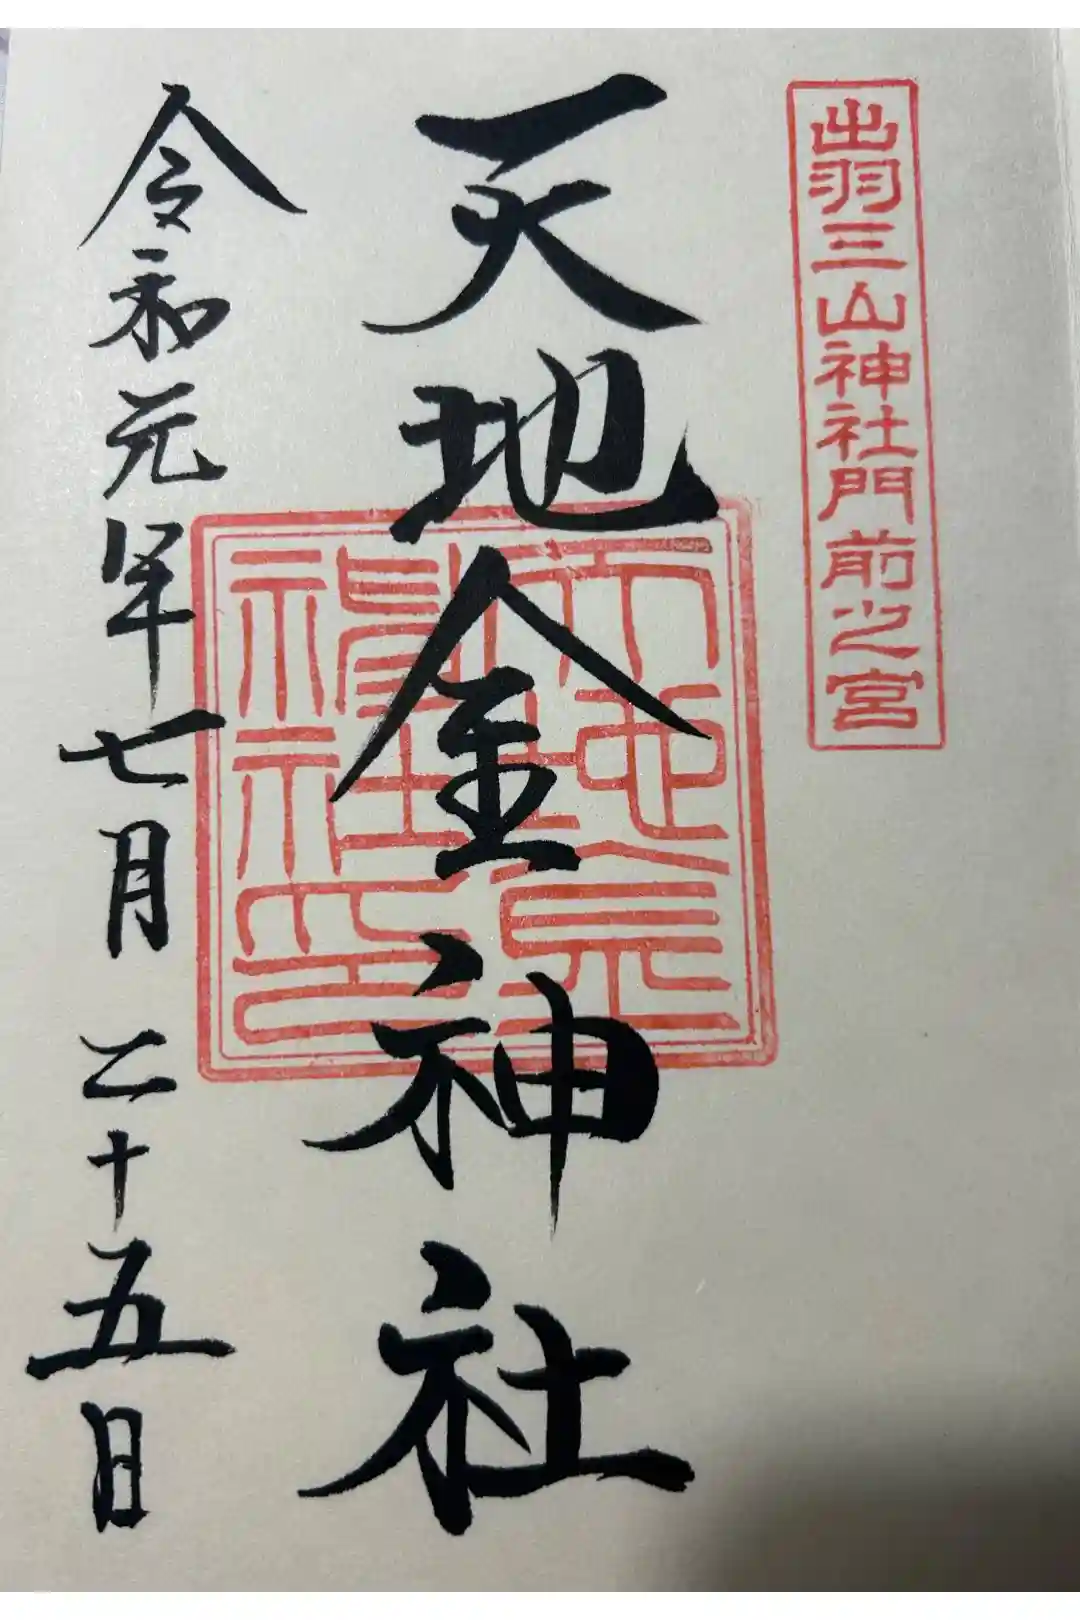 出羽三山神社門前之宮
天地金神社
令和元年七月二十五日